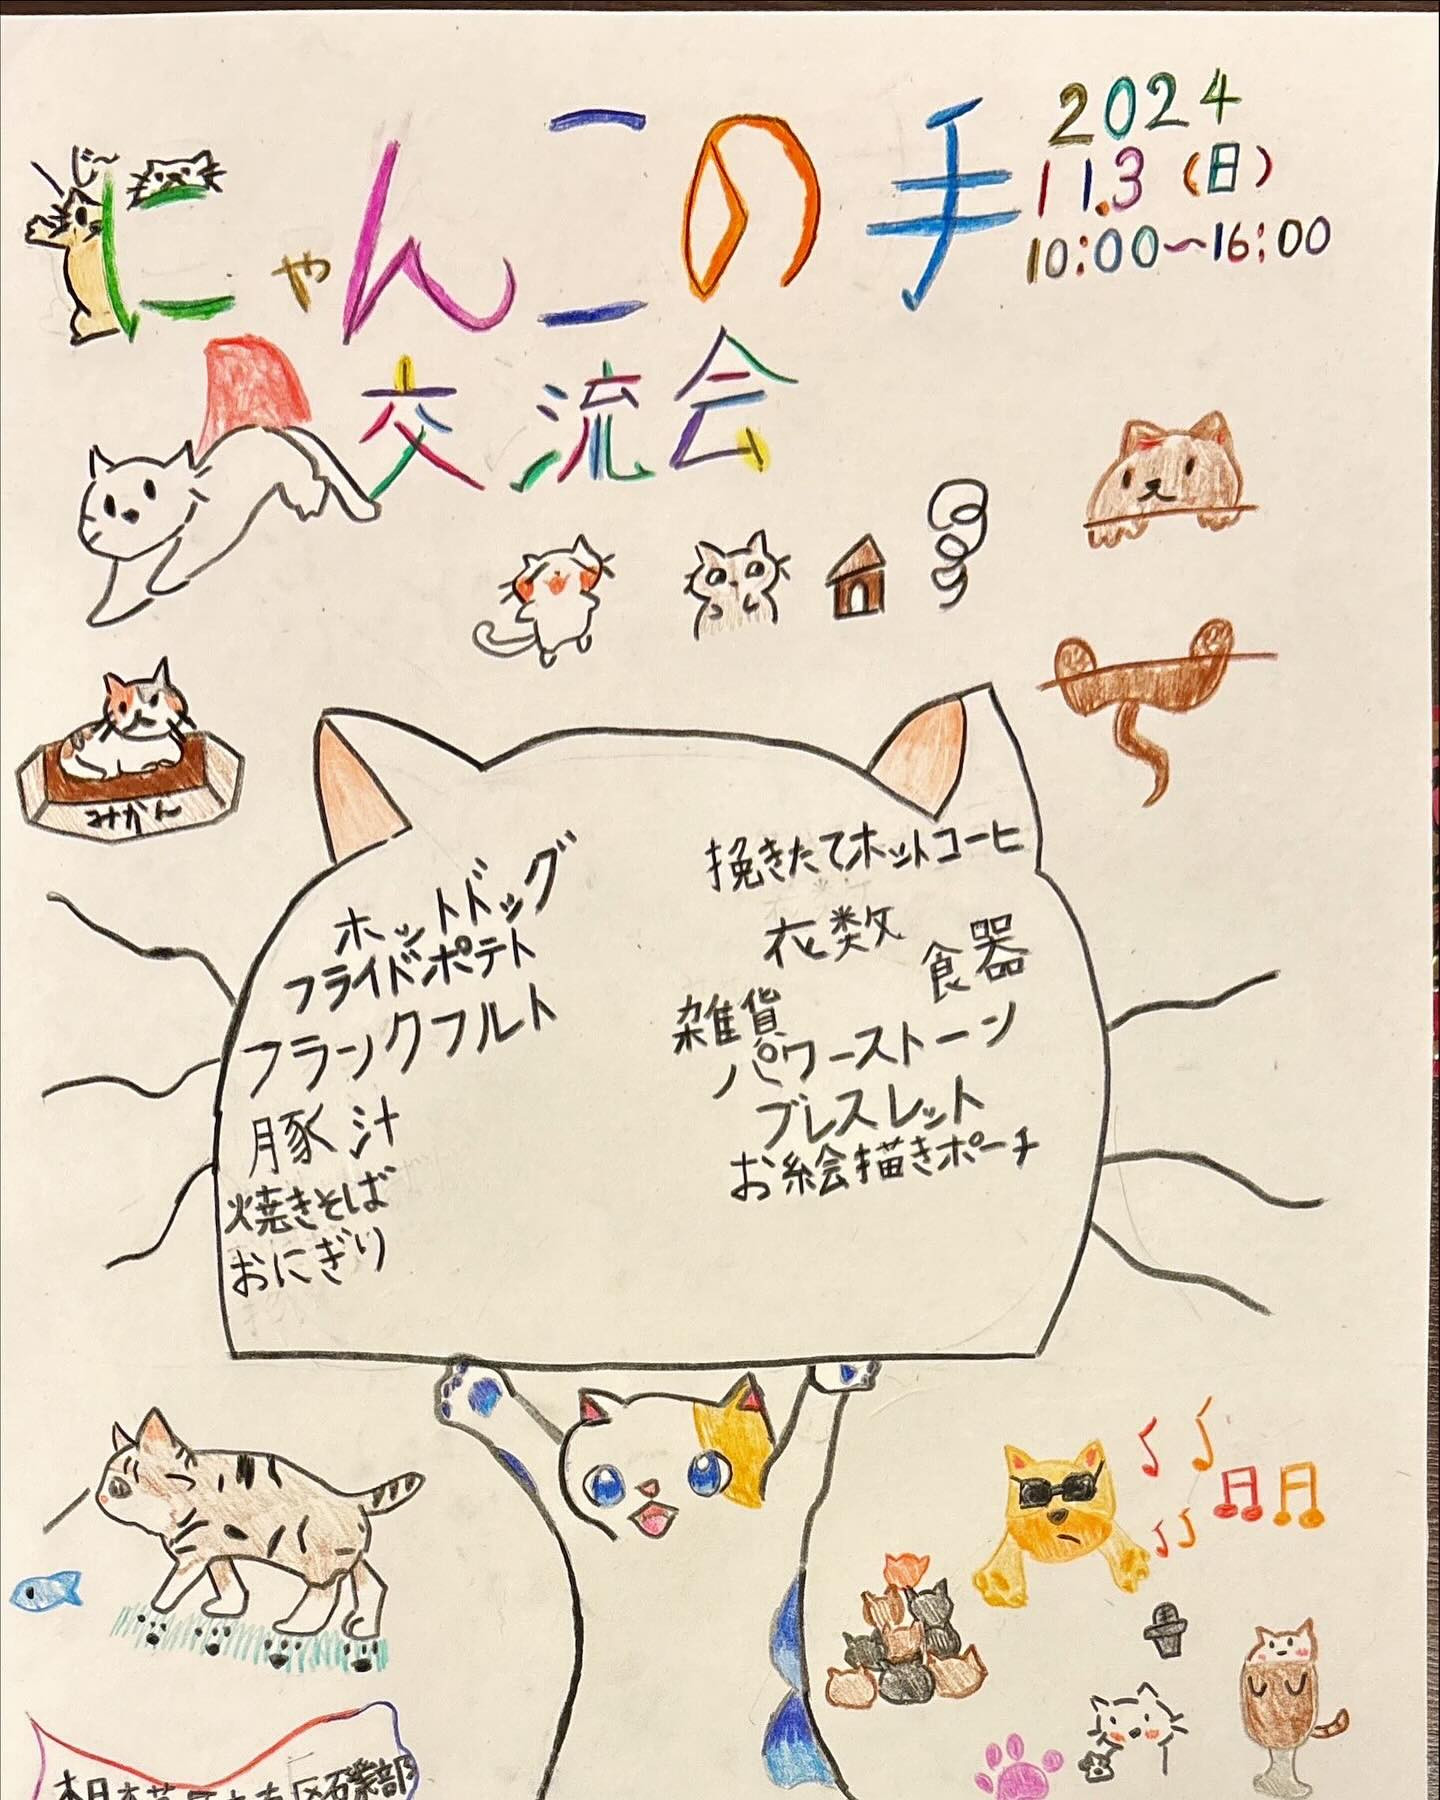 じ〜
にゃんこの手
2024
11.3（日）
10:00〜16:00
交流会
みかん
ホットドッグ
フライドポテト
フランクフルト
豚汁
焼きそば
おにぎり
挽きたてホットコーヒ
衣数
食器
雑貨
パワーストーン
ブレスレット
お絵描きポーチ